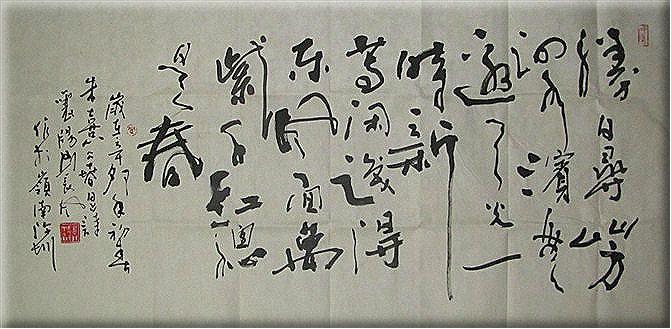 勝日尋芳
泗水濱無
邊光一
時新
等閒識得
東風面萬
紫千紅總
是春
歲在辛卯年初春
朱熹
襄陽
作於嶺南深圳